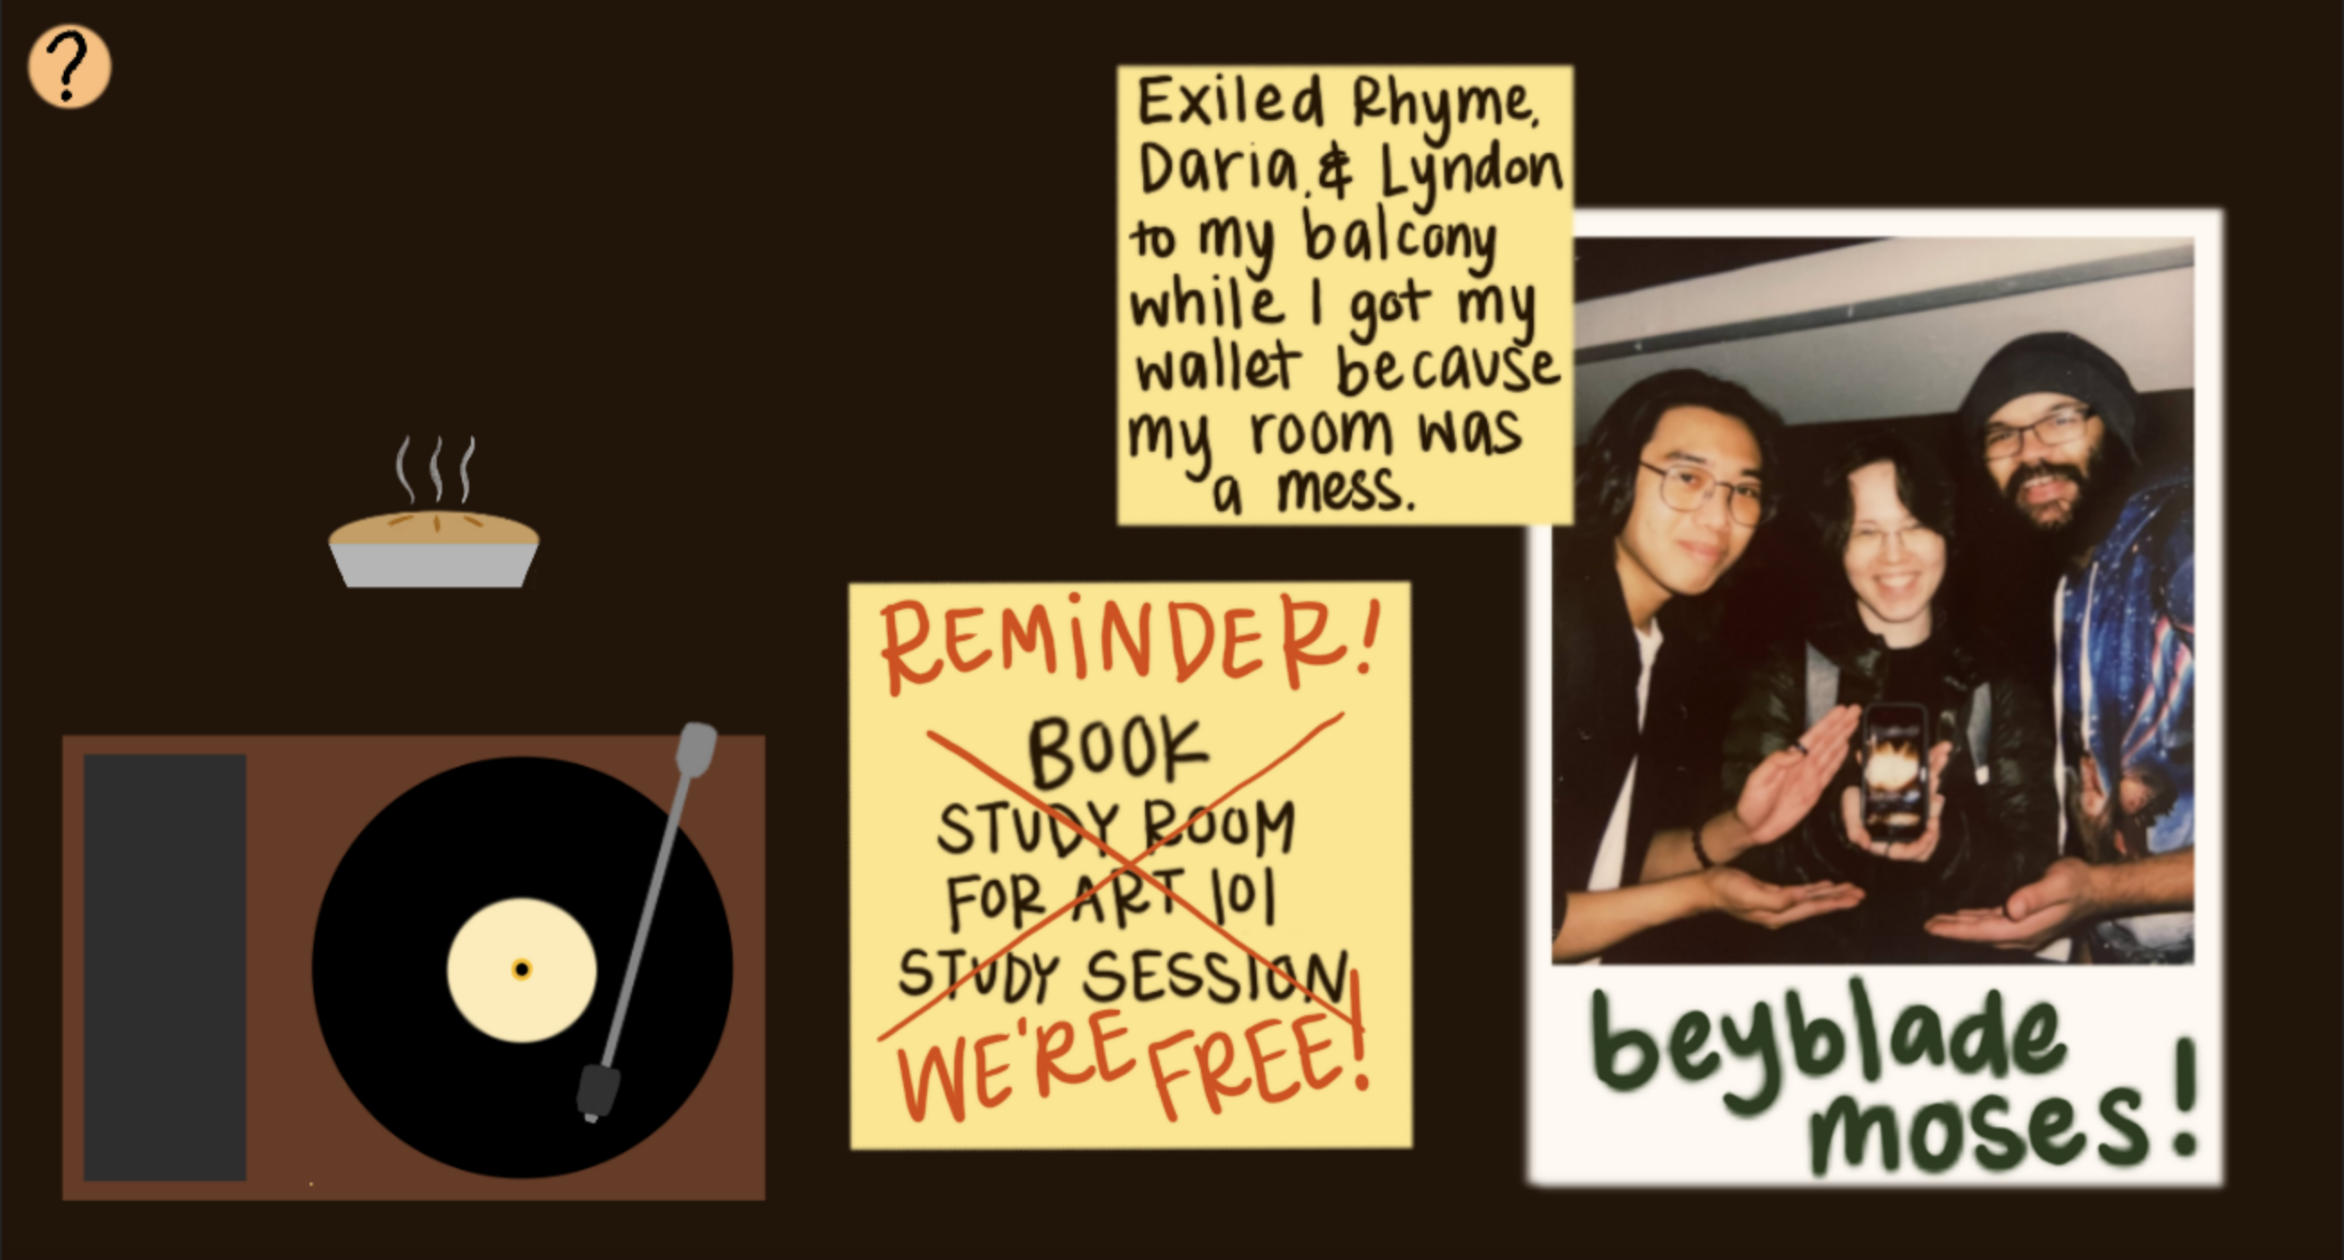 ?
Exiled Rhyme,
Daria, & Lyndon
to my balcony
while I got my
wallet because
my room was
a mess.
REMINDER!
BOOK
STUDY ROOM
FOR ART 101
STUDY SESSION
WE'RE FREE!
beyblade
moses!